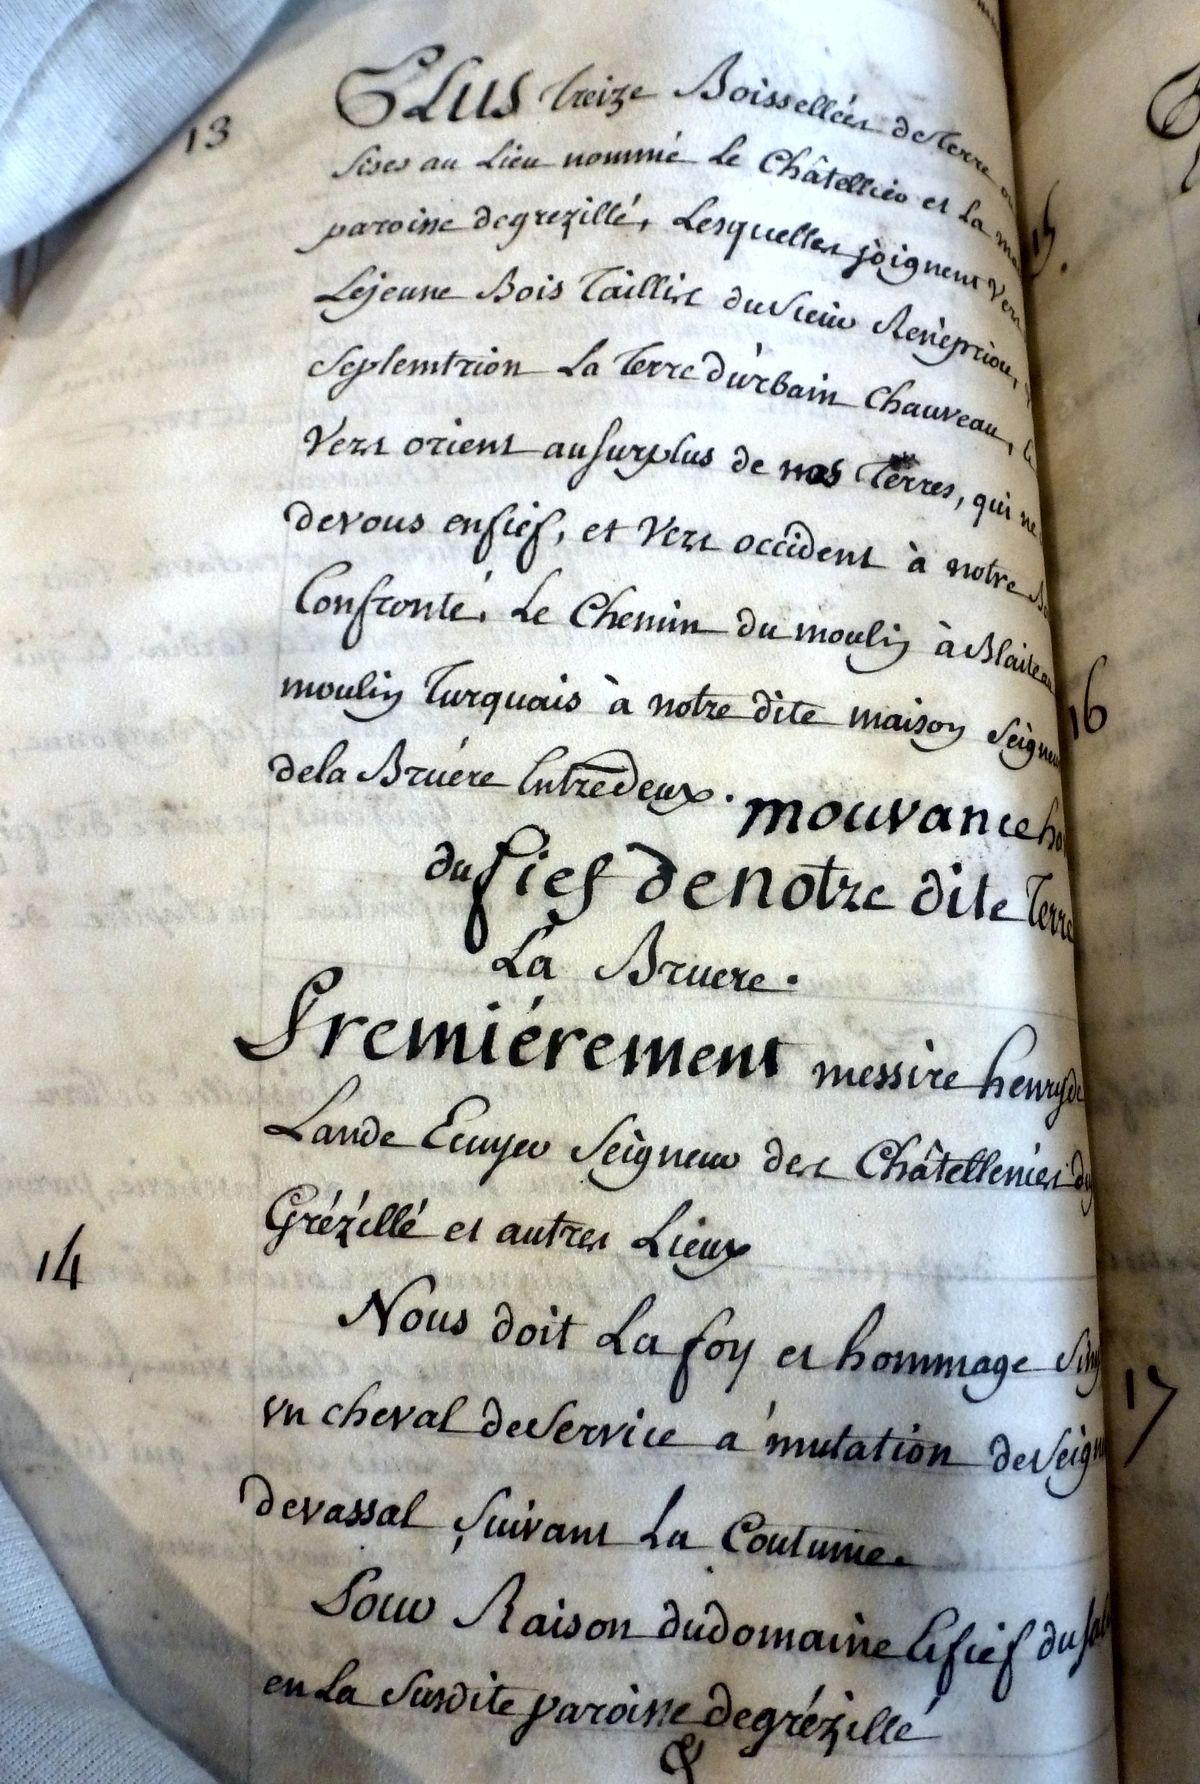 13
PLUS treize Boisselléés de Terre
sises au Lieu nommé Le Châtellier et La
paroisse degrezillé, Lesquelles joignent Vers
Lejeune Bois Taillis du Sieur Renépriou,
septemtrion La Terre d'urbain Chauveau,
Vers orient ausurplus de nos Terres, qui ne
devous enfief, et Vers occident à notre
Confronté, Le Chemin du moulin à Blaiteau
moulin Turquais à notre dite maison
dela Bruére Entredeux. mouvance
du fief de notre dite Terre
La Bruere.
Premiérement messire henry de
Lande Ecuyer Seigneur des Châtellenies
Grézillé et autres Lieux
14
Nous doit La foy et hommage
un cheval deservice a mutation
devassal, suivant La Coutume.
Pour Raison dudomaine & fief du
en La Susdite paroisse degrézillé
&
15.
16
17